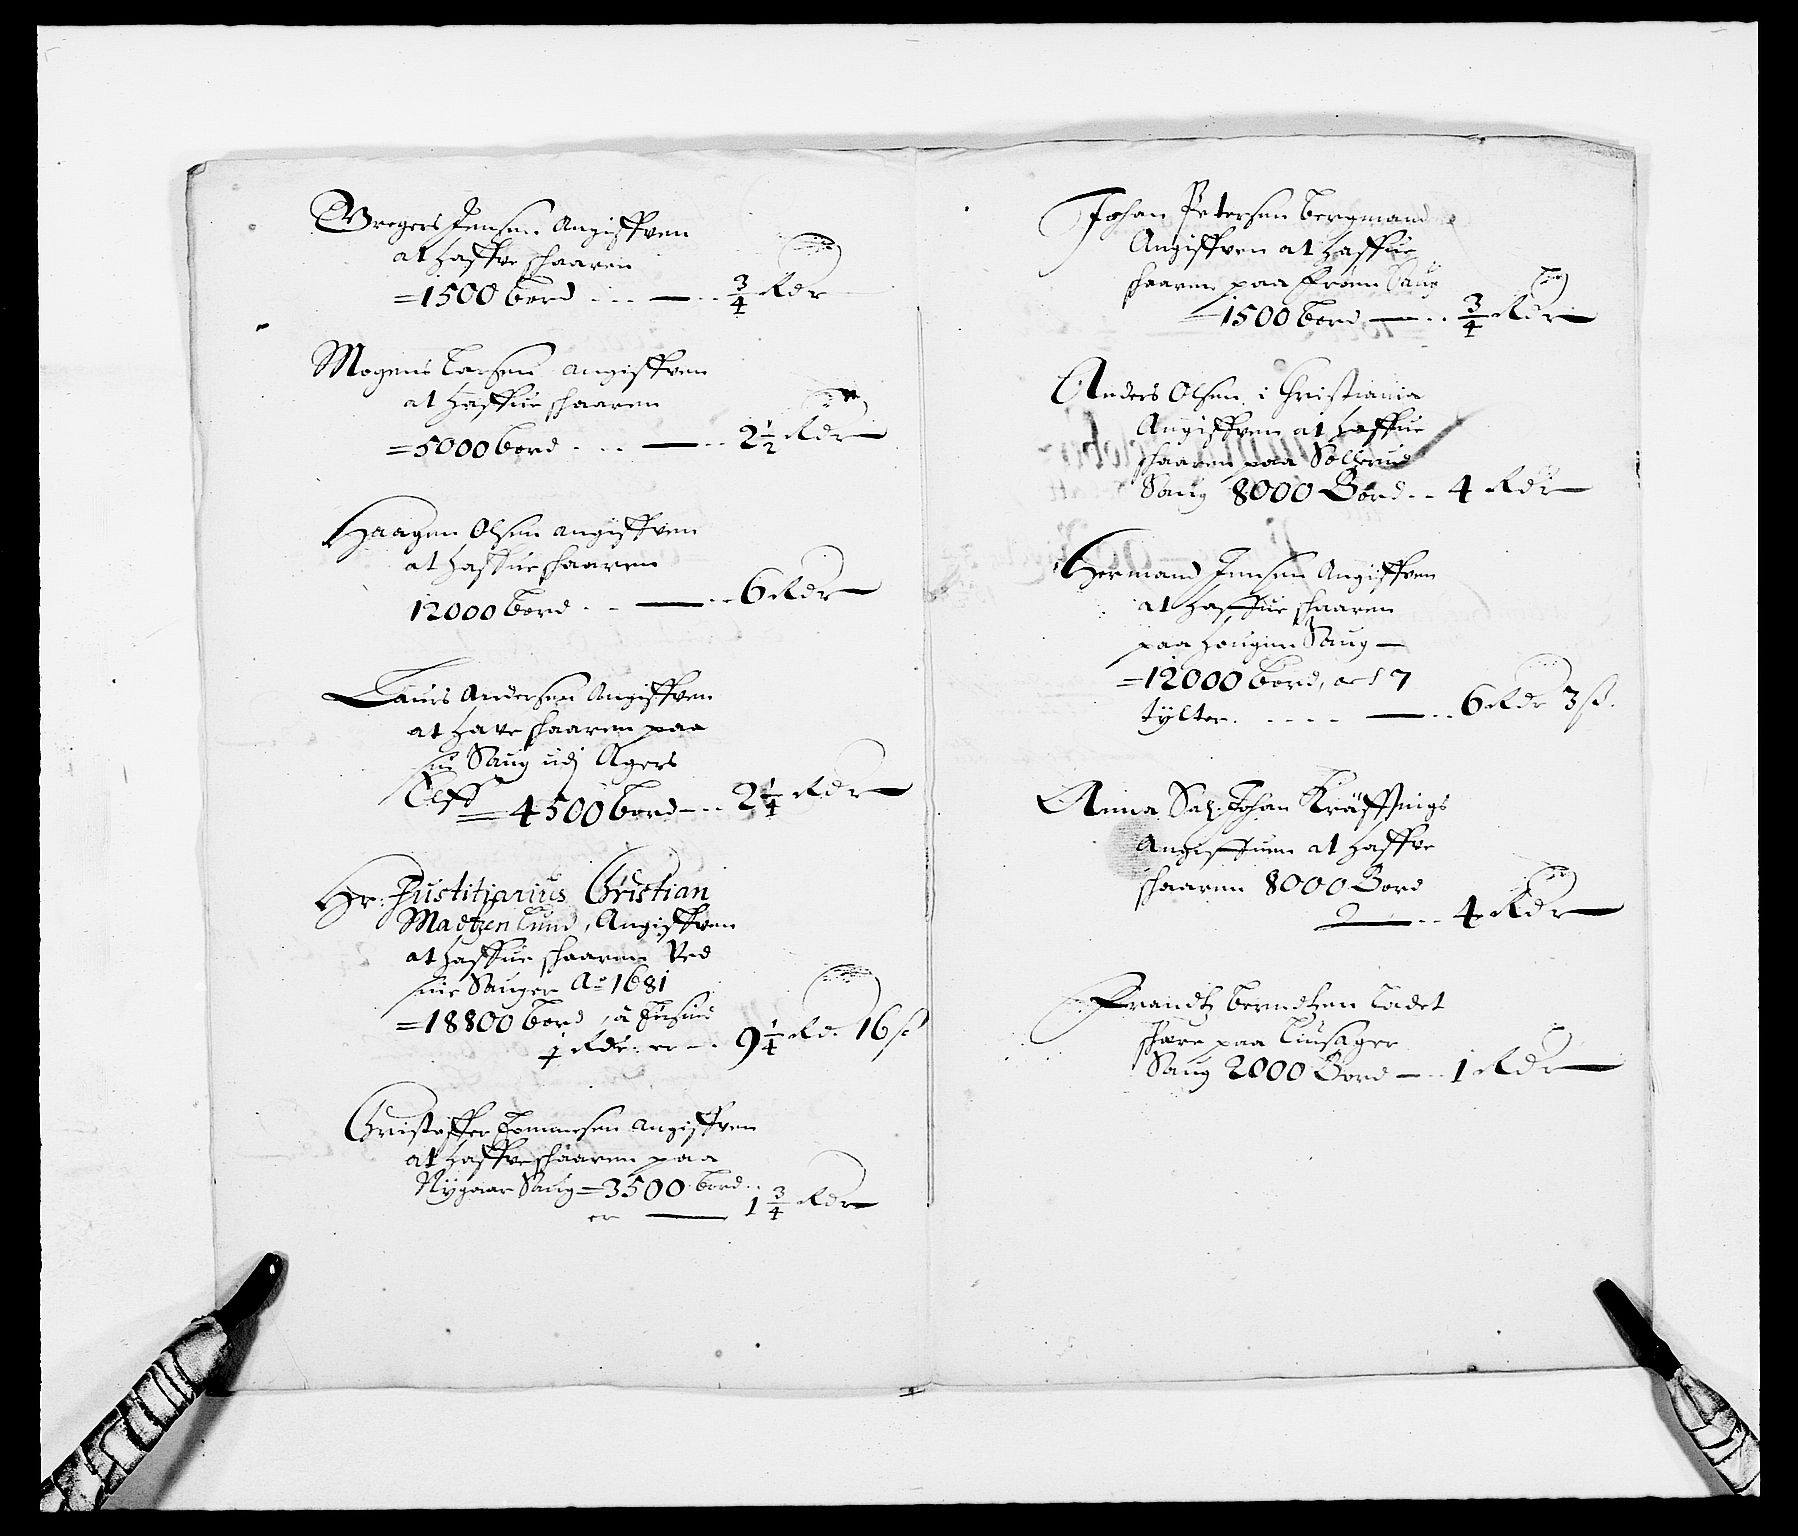 Gregers Jensen Angiffven
at haffve skaaren
=1500 bord - - - — - - 3/4 Rdr
Mogens Larsen angiffven
at haffue skaaren
=5000 bord - - - — - - 2 1/2 Rdr
Haagen Olsen angiffven
at haffue skaaren
12000 bord - - — - - 6 Rdr
Laurs Andersen Angiffven
at have skaaren paa
sin Saug udj Agers
Elff =4500 bord — - - 2 1/4 Rdr
Hr: Justitiarius Christian
Madtzen Lund, Angiffven
at haffue skaaren Ved
sine Sauger Ao 1681
=18800 bord, à tusind
1/2 Rdr: er — - 9 1/4 Rdr 16 ß
Christoffer Tommesen angiffven
at haffve skaaren paa
Nygaar Saug =3500 bord - -
er — 1 3/4 Rdr
Johan Petersen Bergmand
Angiffven at haffue
skaaren paa Frøen Saug
=1500 bord — - - 3/4 Rdr
Anders Olsen i Christiania
Angiffven at haffue
skaaren paa Solberud
Saug 8000 Bord - - 4 Rdr
Hermand Jensen Angiffven
at haffue skaaren
paa Hougen Saug —
=12000 bord, oc 17
tylter. - - - - — - - 6 Rdr 3 ß.
Anna Sal: Johan Kräfftings
Angiffuen at haffve
skaaren 8000 Bord
— - - 4 Rdr
Frandtz Berndtzen Ladet
skare paa Liusager
Saug 2000 Bord — - - 1 Rdr